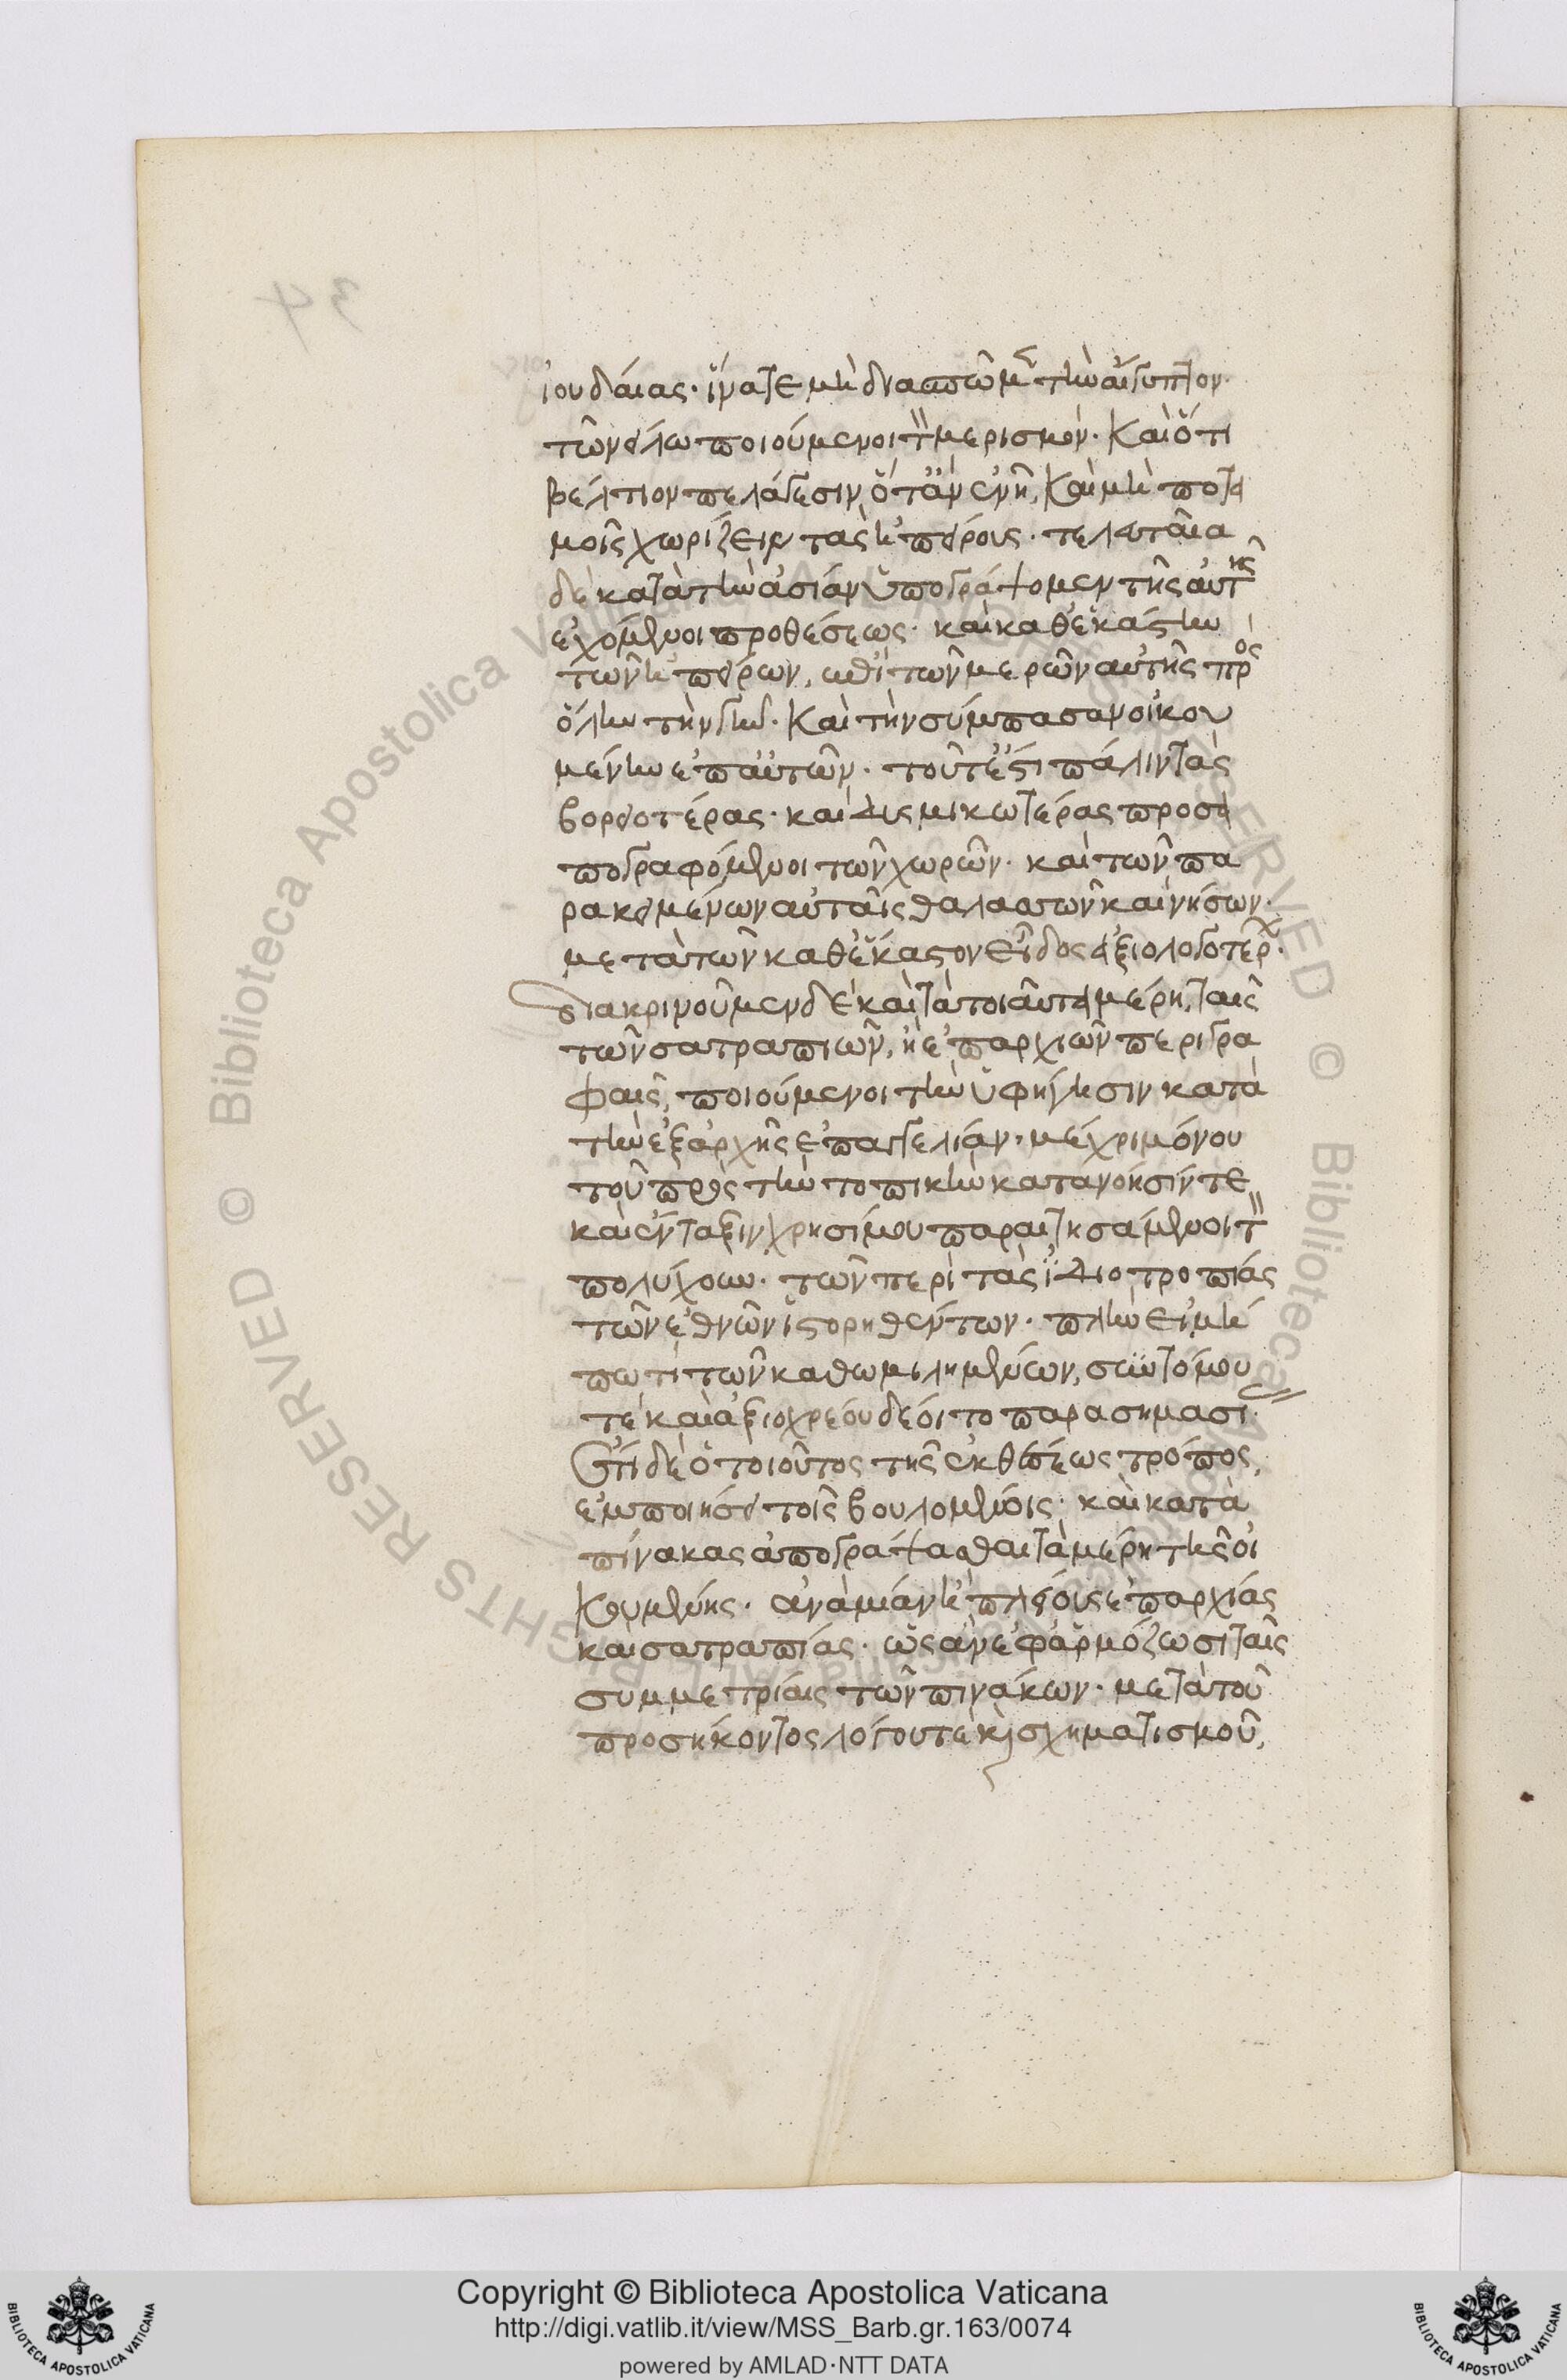 ἰουδαίας· ἵνα τε μὴ διασπῶμ(εν) τὴν αἴγυπτον
τῶ νείλω ποιούμενοι τ(ὸν) μερισμόν· καὶ ὅτι
βέλτιον πελάγεσιν, ὅτ᾽ ἂν ἐνῆ, καὶ μὴ ποτα
μοῖς χωρίζειν τὰς ἠπείρους· τελευταῖα
δὲ κατὰ τὴν ἀσίαν ὑπογράψομεν τῆς αὐτῆς
ἐχόμενοι προθέσεως· καὶ καθ᾽ ἑκάστην
τῶν ἠπείρων, ἐπὶ τῶν μερῶν αὐτῆς πρὸς
ὅλην τὴν γῆν· καὶ τὴν σύμπασαν οἰκου
μένην ἐπ᾽ αὐτῶν· τοῦτ᾽ ἔστι πάλιν τὰς
βορειοτέρας· καὶ δυσμικωτέρας προσα
πογραφόμενοι τῶν χωρῶν· καὶ τῶν πα
ρακειμένων αὐταῖς θαλασσῶν καὶ νήσων·
μετὰ τῶν καθ᾽ ἕκαστον εἶδος ἀξιολογοτέρ(ων)·
διακρινοῦμεν δὲ καὶ τὰ τοιαῦτα μέρη, ταῖς
τῶν σατραπιῶν, ἢ ἐπαρχιῶν περιγρα
φαῖς, ποιούμενοι τὴν ὑφήγησιν κατὰ
τὴν ἐξαρχῆς ἐπαγγελίαν· μέχρι μόνου
τοῦ πρὸς τὴν τοπικὴν κατανόησίν τε
καὶ ἔνταξιν χρησίμου παραιτησάμενοι τ(ὸ)
πολύχουν· τῶν περὶ τὰς ἰδιοτροπίας
τῶν ἐθνῶν ἱστορηθέντων· πλὴν εἰ μή
πω τὶ τῶν καθωμιλημένων, συντόμου
τὲ καὶ ἀξιόχρεου δέοιτο παρασημασι·
ἔτι δὲ ὁ τοιοῦτος τῆς ἐκθέσεως τρόπος,
ἐμποιήσει τοῖς βουλομένοις· καὶ κατὰ
πίνακας ἀπογράψασθαι τὰ μέρη τῆς οἰ
κουμένης· ἀνὰ μίαν ἢ πλείους ἐπαρχίας
καὶ σατραπίας· ὡς ἂν ἐφαρμόζωσι ταῖς
συμμετρίαις τῶν πινάκων· μετὰ τοῦ
προσήκοντος λόγου τὲ κ(αὶ) σχηματισμοῦ,
Copyright © Biblioteca Apostolica Vaticana
http://digi.vatlib.it/view/MSS_Barb.gr.163/0074
powered by AMLAD·NTT DATA